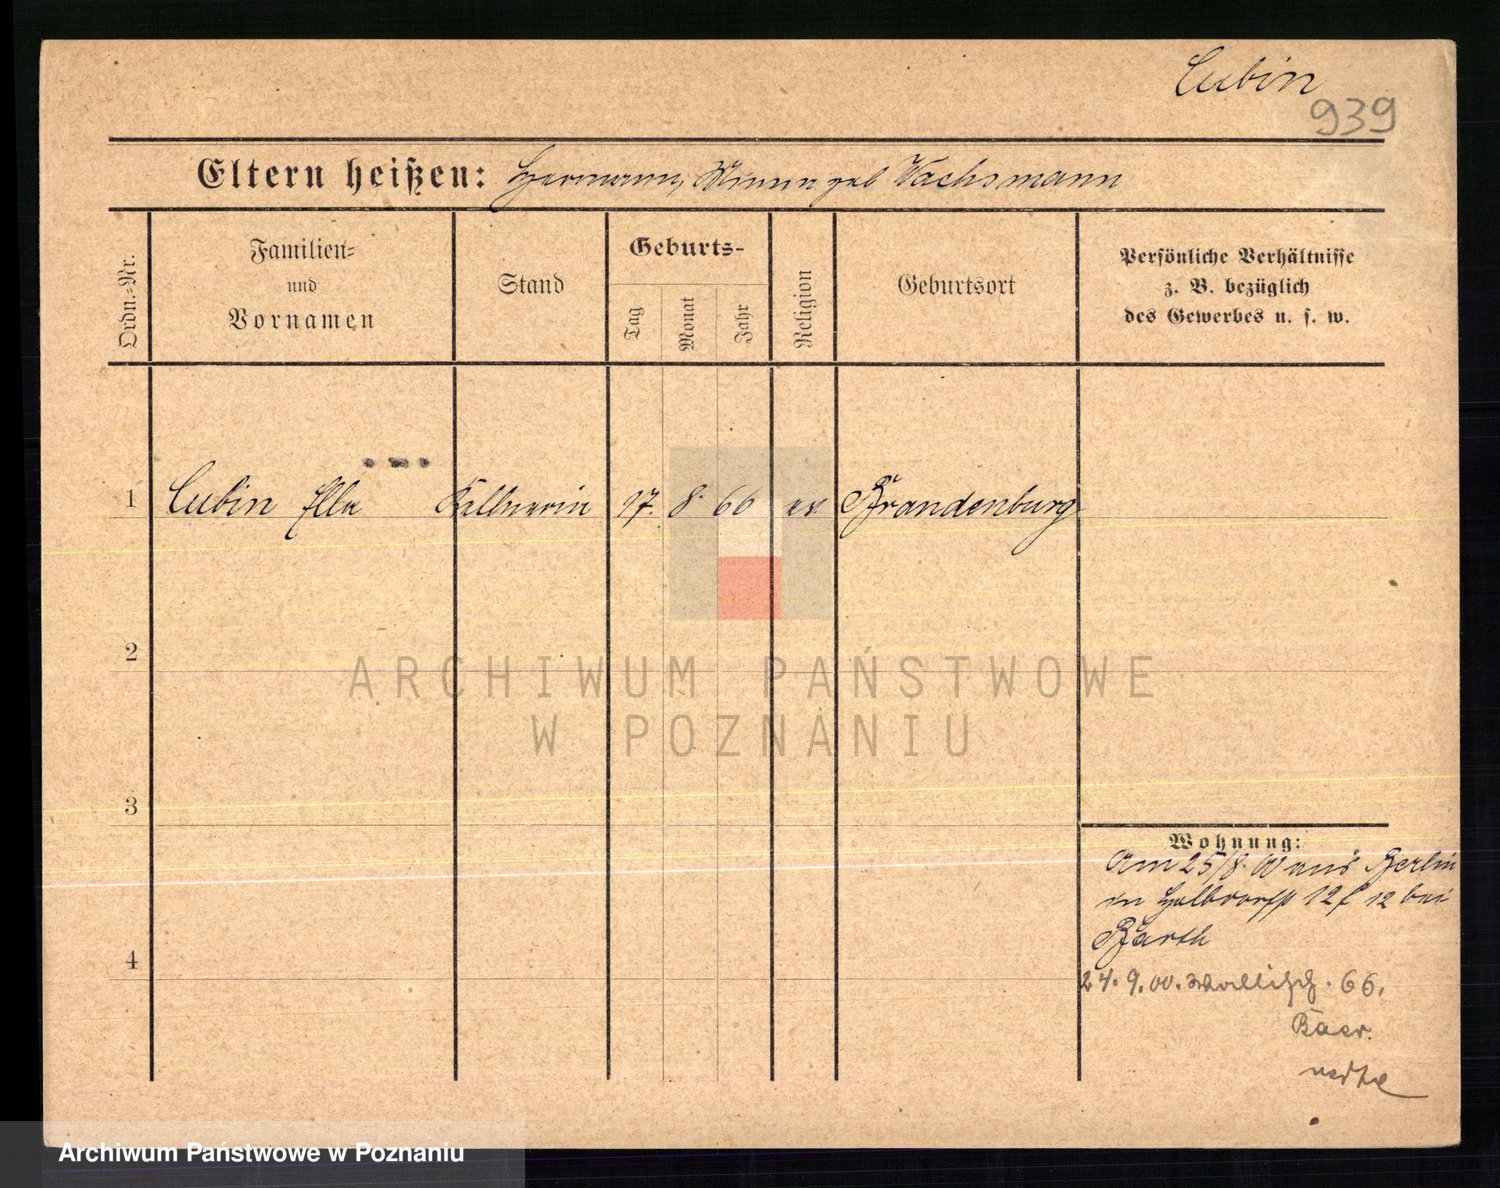 Cubin
939
Eltern heißen: Hermann, Minna geb Wachsmann
Ordn.-Nr.
Familien-
und
Vornamen
Stand
Geburts-
Tag
Monat
Jahr
Religion
Geburtsort
Persönliche Verhältnisse
z. B. bezüglich
des Gewerbes u. s. w.
1 Cubin Ella Kellnerin 17. 8. 66 ev. Brandenburg
2
ARCHIWUM PAŃSTWOWE
W POZNANIU
3
Wohnung:
Am 25/8. 00 aus Berlin
in 12 bei
Barth
4
24. 9. 00. Wallisch. 66.
Baer
Archiwum Państwowe w Poznaniu